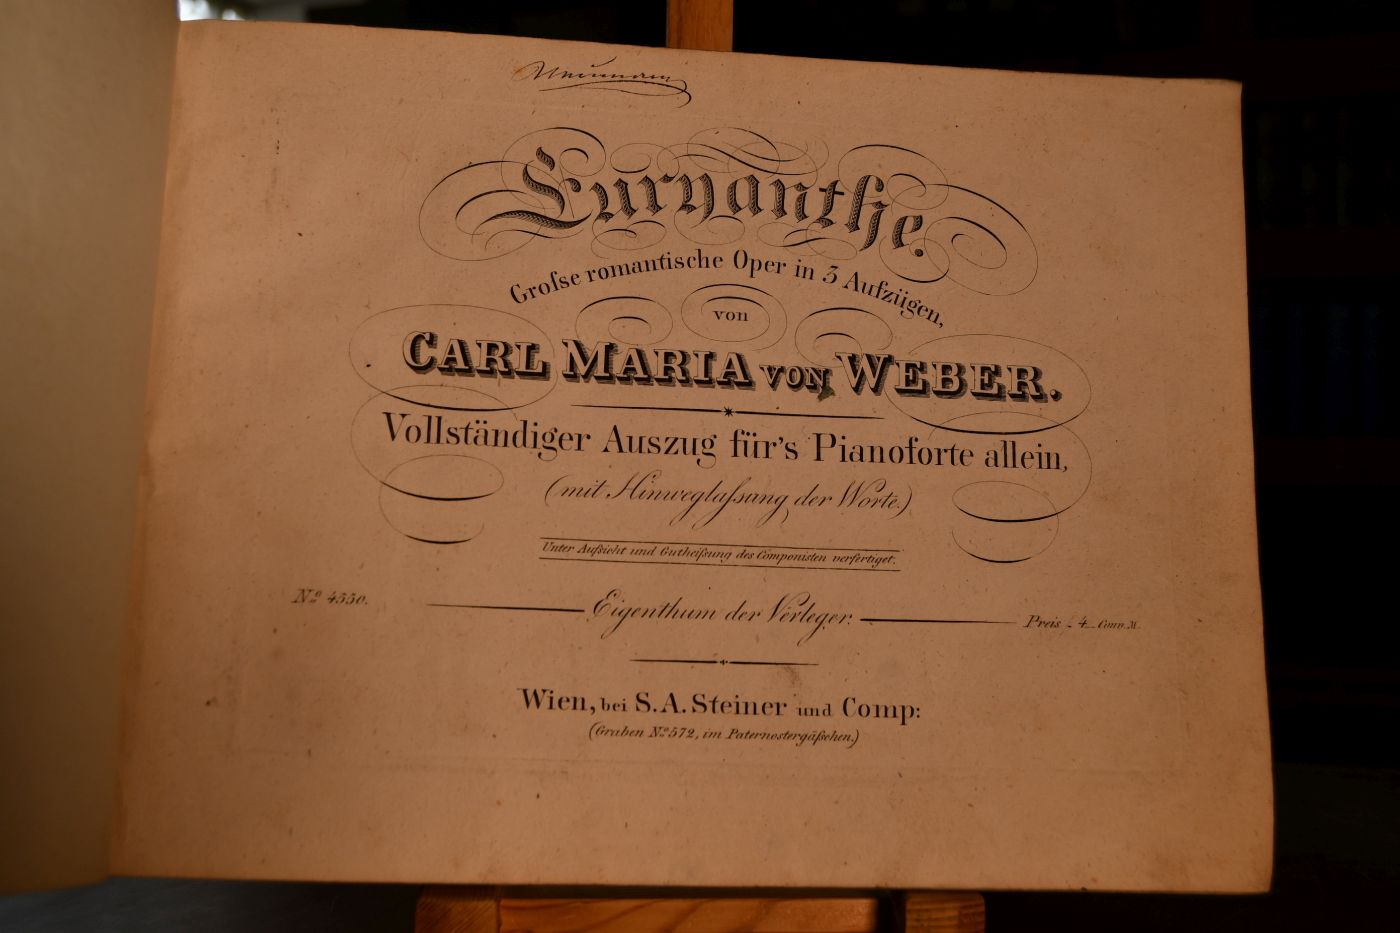 Neumann
Euryanthe.
Groſse romantische Oper in 3 Aufzügen,
von
CARL MARIA VON WEBER.
Vollständiger Auszug für's Pianoforte allein,
(mit Hinweglaſsung der Worte.)
Unter Aufsicht und Gutheiſsung des Componisten verfertiget.
No 4550.
Eigenthum der Verleger.
Preis 4 Conv. M.
Wien, bei S. A. Steiner und Comp:
(Graben No 572, im Paternostergäſschen.)